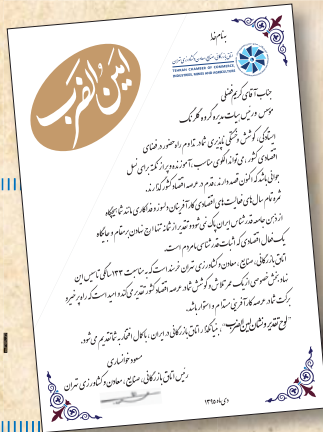 به نام خدا
امین الضرب
اتاق بازرگانی، صنایع، معادن و کشاورزی تهران
TEHRAN CHAMBER OF COMMERCE,
INDUSTRIES, MINES AND AGRICULTURE
جناب آقای کریم فضلی
موسس و رئیس هیات مدیره گروه گلرنگ
ایستادگی، کوشش و خستگی ناپذیری شما در تداوم راه و حضور در فضای
اقتصادی کشور، می‌تواند الگوی مناسب، آموزنده و پر از نکته برای نسل
جوانی باشد که اکنون قصد دارند، قدم در عرصه اقتصاد کشور گذارند.
ثمره تمام سال های فعالیت های اقتصادی کارآفرینان دلسوز و فداکاری مانند شما هیچگاه
از ذهن جامعه قدرشناس ایران پاک نمی شود و تقدیر از شما نه تنها ارج نهادن بر مقام و جایگاه
یک فعال اقتصادی که اثبات قدرشناسی ما مردم است.
اتاق بازرگانی، صنایع، معادن و کشاورزی تهران خرسند است که به مناسبت ۱۳۳ سالگی تاسیس این
نهاد بخش خصوصی از یک عمر تلاش و کوشش شما در عرصه اقتصاد کشور تقدیر می‌کند و امید است که راه پر ثمر و
برکت شما در عرصه کارآفرینی مستدام و استوار باشد.
"لوح تقدیر و نشان امین الضرب"، بنیانگذار اتاق بازرگانی در ایران، با کمال افتخار به شما تقدیم می شود.
مسعود خوانساری
رئیس اتاق بازرگانی، صنایع، معادن و کشاورزی تهران
دی ماه ۱۳۹۵